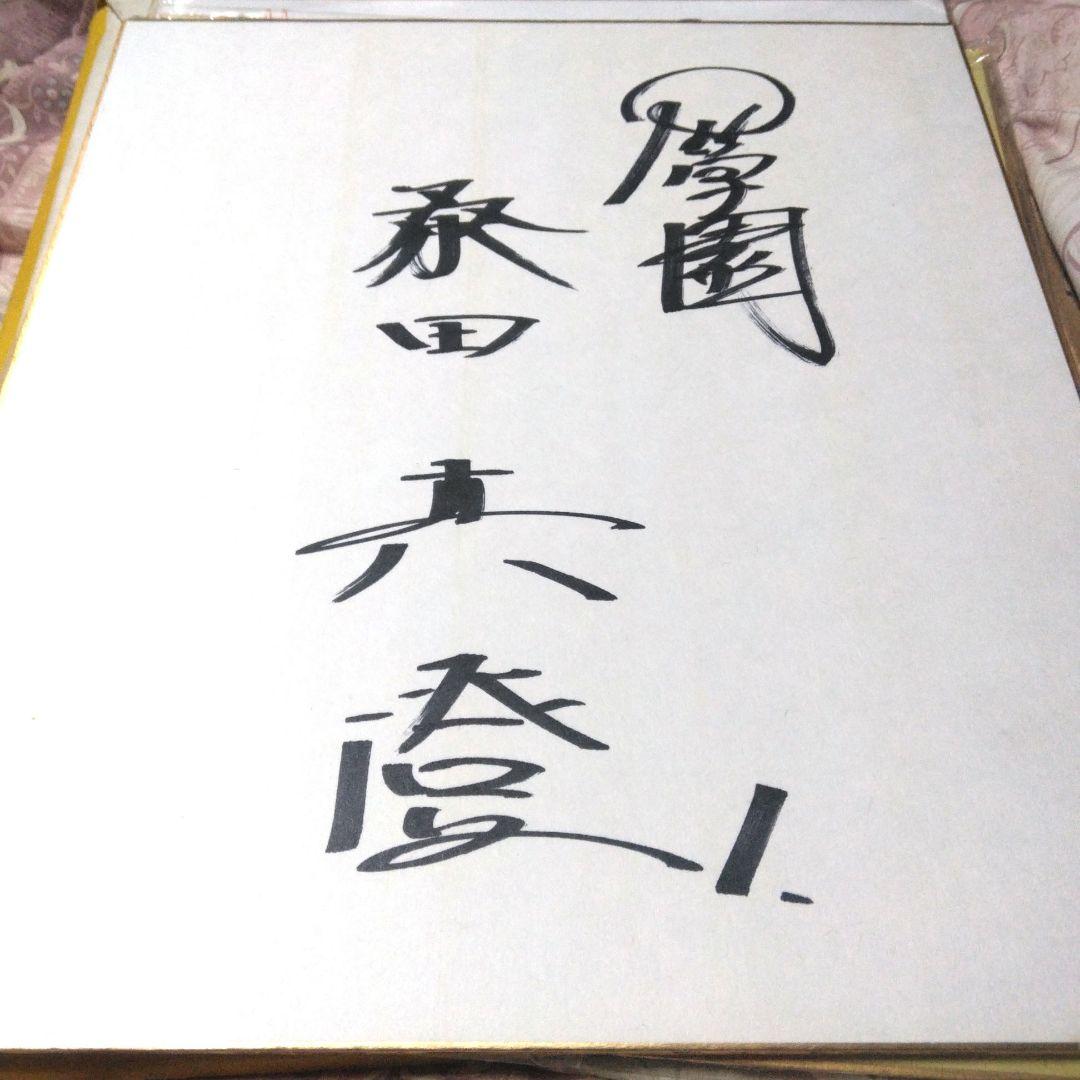 PL學園
桑田真澄 1.